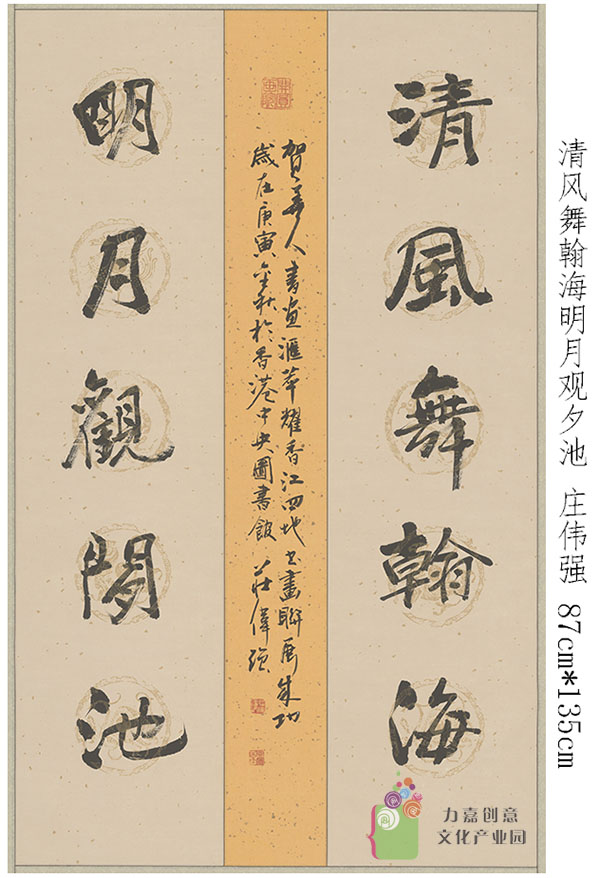 清风舞翰海明月观夕池 庄伟强 87cm*135cm
清風舞翰海
賀華人書画滙萃耀香江四地书畫聯展成功
歲在庚寅金秋於香港中央圖書館 莊偉強
明月觀閒池
力嘉创意
文化产业园